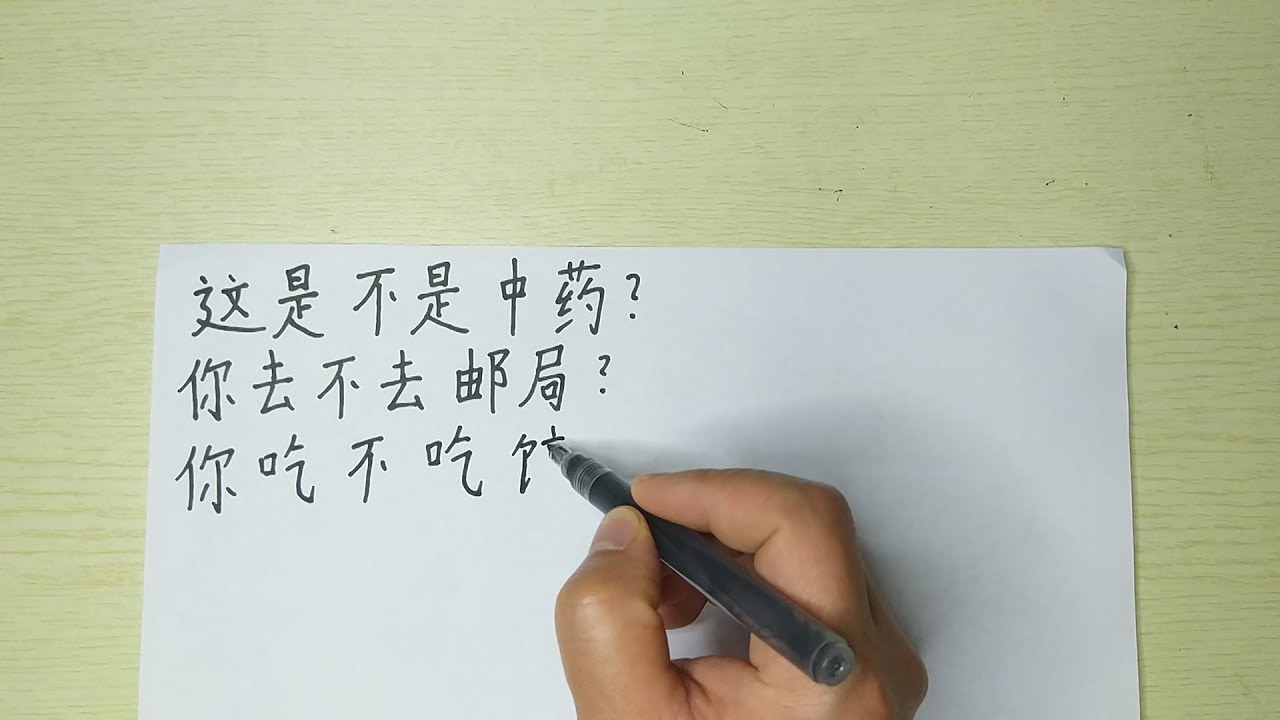 这是不是中药?
你去不去邮局?
你吃不吃